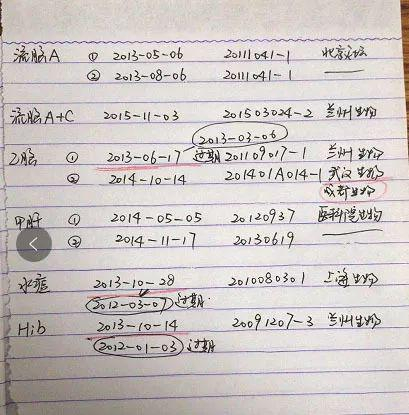 流脑A ① 2013-05-06 20111041-1
② 2013-08-06 20111041-1
流脑A+C 2015-11-03 201503024-2 兰州生物
2013-03-06
乙脑 ① 2013-06-17 过期 201109017-1 兰州生物
② 2014-10-14 201401A014-1 武汉生物
成都生物
甲肝 ① 2014-05-05 20120937 医科院生物
② 2014-11-17 20130619
水痘 2013-10-28 2010080301 上海生物
2012-03-07 过期
Hib 2013-10-14 20091207-3 兰州生物
2012-01-03 过期